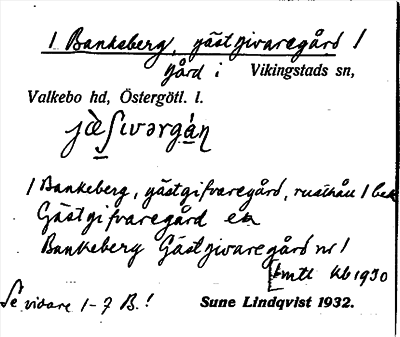 1 Bankeberg, gästgivaregård 1
gård i Vikingstads sn,
Valkebo hd, Östergötl. l.
1 Bankeberg, gästgifvaregård, rusthåll 1
Gästgifvaregård en
Bankeberg Gästgivaregård nr 1
kb 1930
Se vidare 1-7 B.!
Sune Lindqvist 1932.